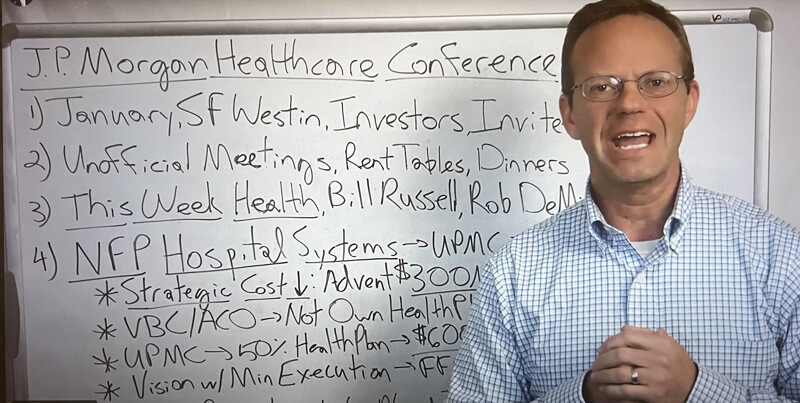 J.P. Morgan Healthcare Conference
1) January, SF Westin, Investors, Invite
2) Unofficial Meetings, Rent Tables, Dinners
3) This Week Health, Bill Russell, Rob DeM
4) NFP Hospital Systems → UPMC
* Strategic Cost ↓: Advent $300M
* VBC/ACO → Not Own Health Pl
* UPMC → 50% Health Plan → $600
* Vision w/ Min Execution → FF